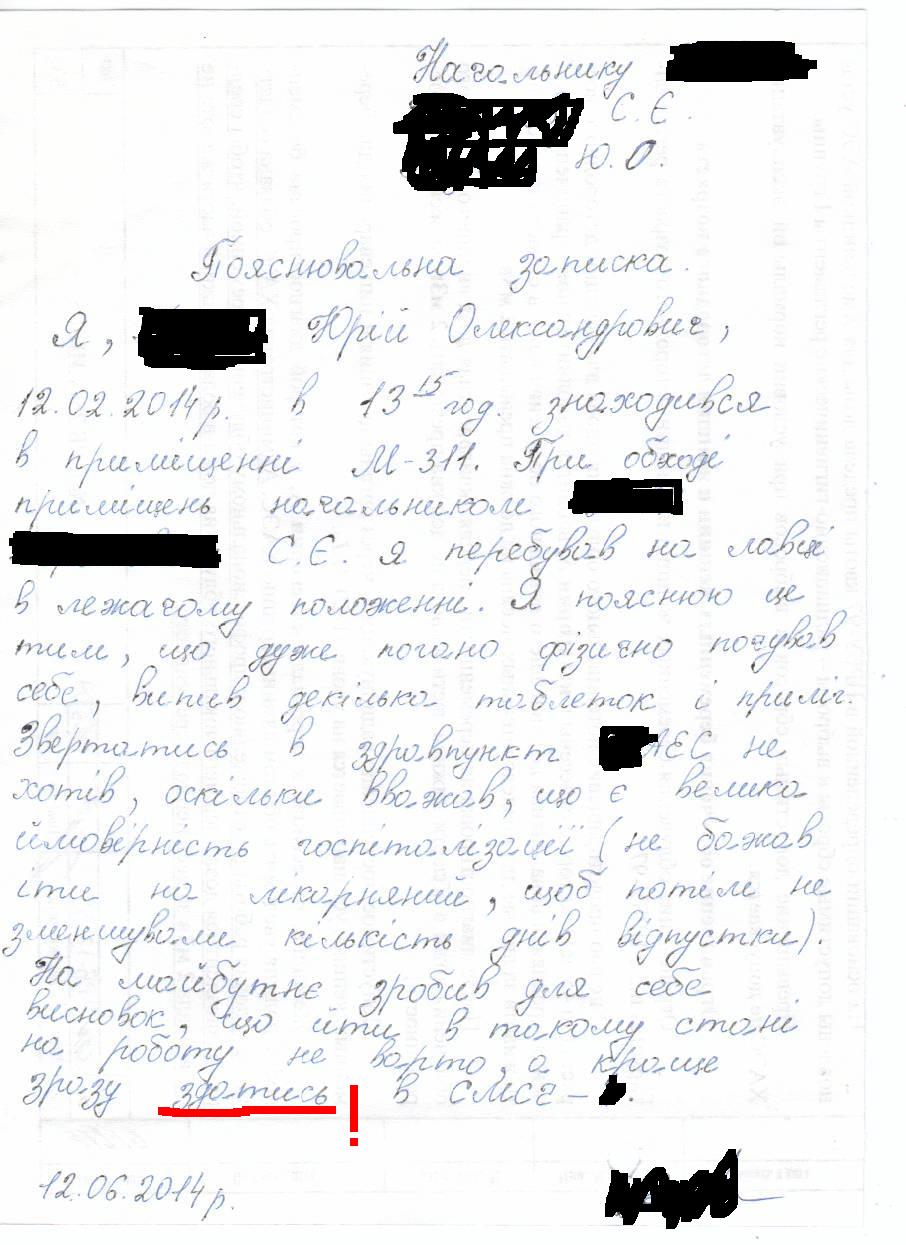 Начальнику
С.Є.
Ю.О.
Пояснювальна записка.
Я, Юрій Олександрович,
12.02.2014р. в 13 15 год. знаходився
в приміщенні М-311. При обході
приміщень начальником
С.Є. я перебував на лавці
в лежачому положенні. Я пояснюю це
тим, що дуже погано фізично почував
себе, випив декілька таблеток і приліг.
Звертатись в здравпункт АЕС не
хотів, оскільки вважав, що є велика
ймовірність госпіталізації (не бажав
іти на лікарняний, щоб потім не
зменшували кількість днів відпустки).
На майбутнє зробив для себе
висновок, що йти в такому стані
на роботу не варто, а краще
зразу здатись! в СМСЧ-
12.06.2014р.